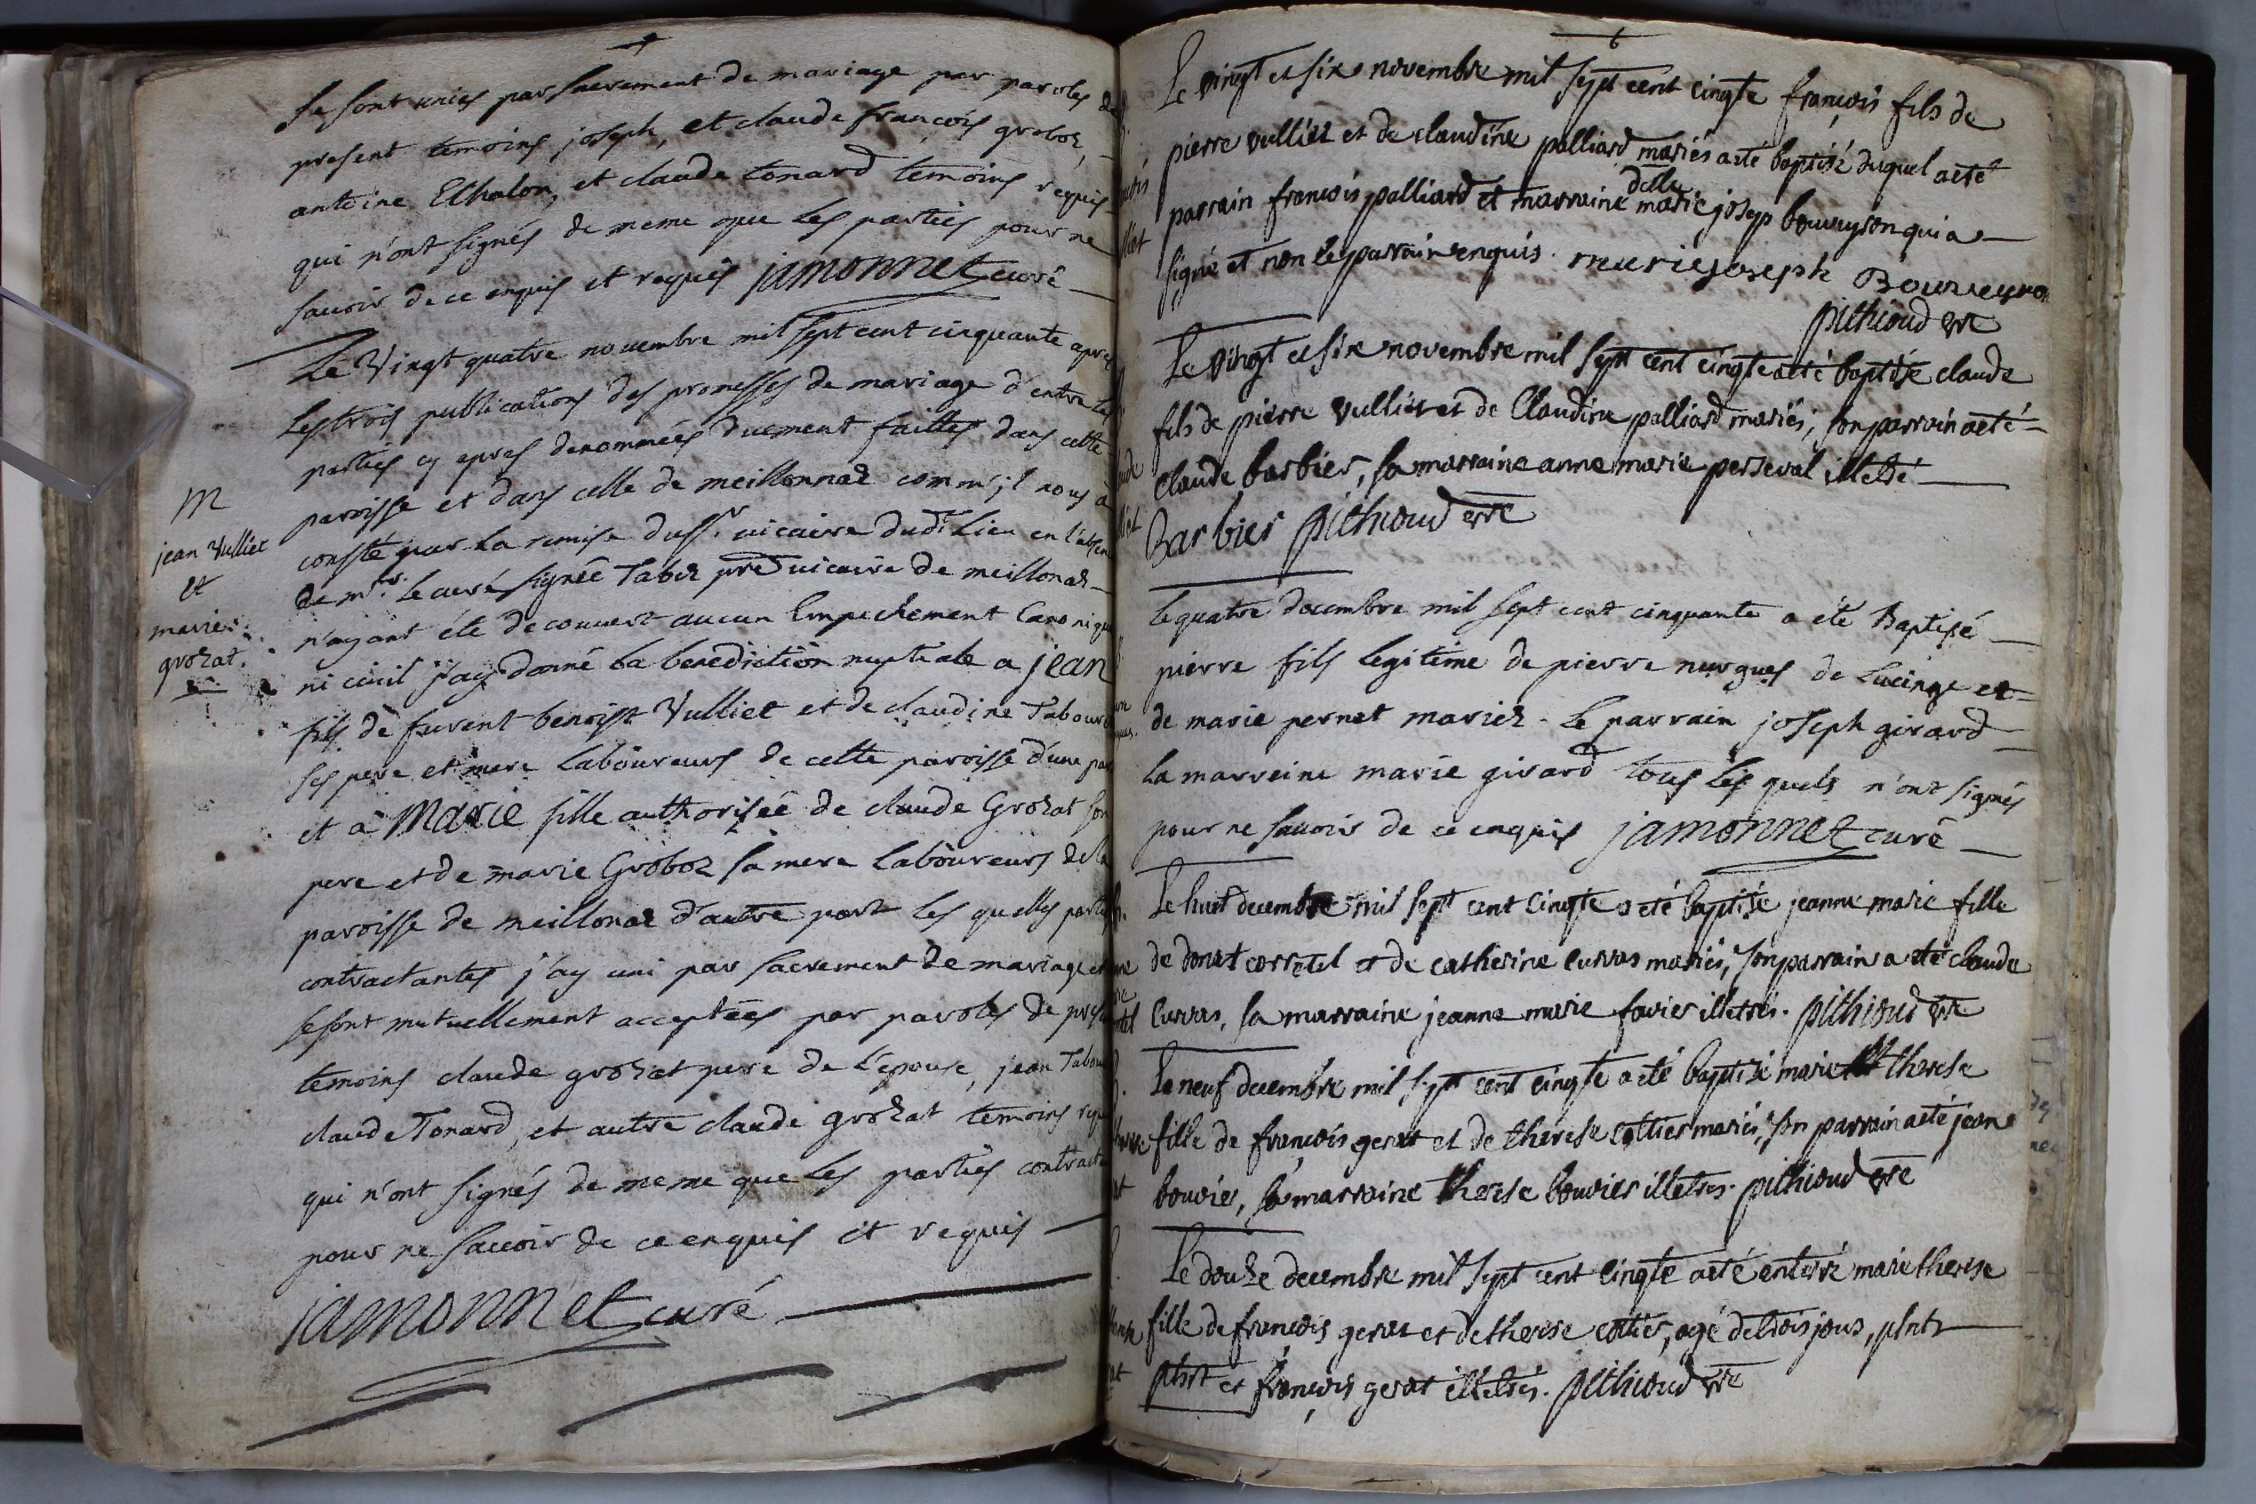 se sont unies par sacrement de mariage par paroles de
present temoins joseph, et claude françois groboz,
antoine Echalon, et claude tonard temoins requis
qui n'ont signés de meme que les parties pour ne
savoir de ce enquis et requis jamonnet curé
Le Vingt quatre novembre mil sept cent cinquante apres
les trois publications des promesses de mariage d'entre les
parties cy apres denommées duement faittes dans cette
paroisse et dans celle de meillonnaz comm'il nous a
consté par la remise du sr. vicaire dudt Lieu en l'absen
de mr. le curé signée Tabez pre vicaire de meillonaz
n'ayant été decouvert aucun Empechement Canonique
ni civil j'ay donné la benediction nuptiale a jean
fils de furent benoist Vulliet et de claudine Tabour
ses pere et mere Laboureurs de cette paroisse d'une par
et à Marie fille authorisée de claude Grozat son
pere et de marie Groboz sa mere Laboureurs de la
paroisse de meillonaz d'autre part les quelles parties
contractantes j'ay uni par sacrement de mariage et
se sont mutuellement acceptées par paroles de pres
temoins claude grozat pere de L'epouse, jean Tabou
claude Tonard, et autre claude grozat temoins requ
qui n'ont signés de meme que les parties contracta
pour ne savoir de ce enquis et requis
jamonnet curé
M
jean Vulliet
et
marie
grozat
Le vingt et six novembre mil sept cent cinqte françois fils de
pierre vulliet et de claudine palliard mariés a eté baptisé duquel a eté
parrain francois palliard et marraine delle marie josep bouveyron qui a
signé et non le parrain enquis. marie joseph Bouveyron
pithioud vre
Le vingt et six novembre mil sept cent cinqte a eté baptisé claude
fils de pierre vulliet et de Claudine palliard mariés, son parrain a eté
claude barbier, sa marraine anne marie perseval illetré
Barbier pithioud vre
le quatre decembre mil sept cent cinquante a été Baptisé
pierre fils legitime de pierre nurgues de Lucinge et
de marie pernet mariez. Le parrain joseph girard
La marreine marie girard tous les quels n'ont signés
pour ne savoir de ce enquis jamonnet curé
Le huit decembre mil sept cent cinqte a eté baptisé jeanne marie fille
de donat corretel et de catherine curvas mariés, son parrain a eté claude
Curvas, sa marraine jeanne marie favier illetrés. pithioud vre
Le neuf decembre mil sept cent cinqte a eté baptisé marie therese
fille de francois gerat et de therese cottier mariés, son parrain a eté jean
bouvier, sa marraine therese bouvier illetres. pithioud vre
Le douze decembre mil sept cent cinqte a eté enterré marie therese
fille de françois gerat et de therese cotier, agé de trois jours, pñts
phrt et françois gerat illetrés. pithioud vre